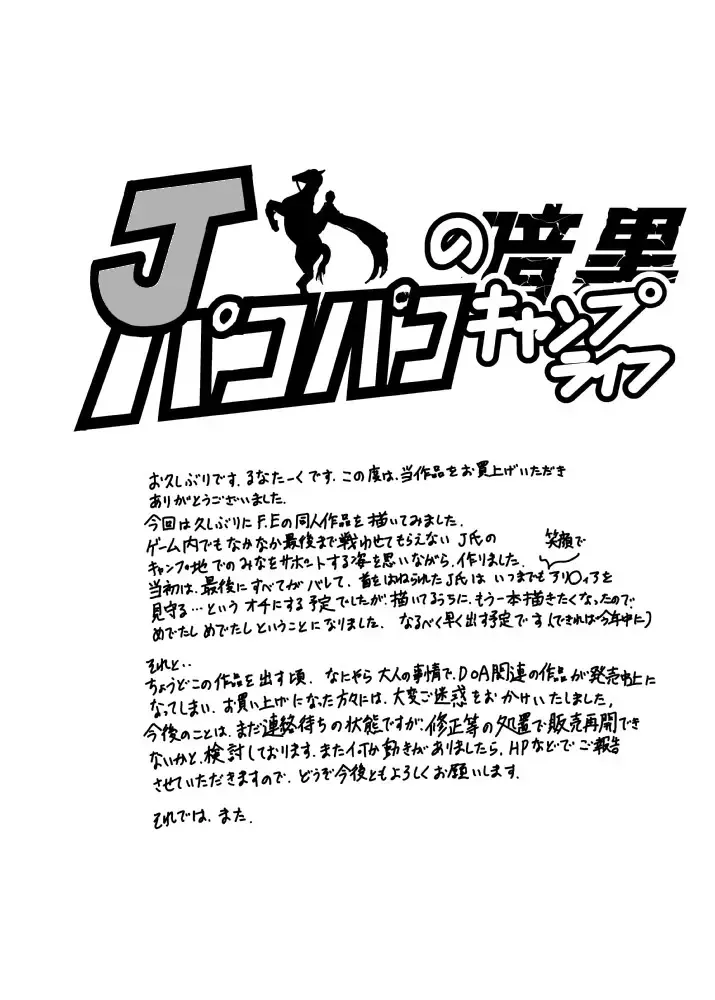 Jの暗黒
パコパコキャンプ
ライフ
お久しぶりです。るなたーくです。この度は、当作品をお買上げいただき
ありがとうございました。
今回は久しぶりにF.Eの同人作品を描いてみました。
ゲーム内でもなかなか最後まで戦わせてもらえないJ氏の
笑顔で
キャンプ地でのみなをサポートする姿を思いながら、作りました。
当初は、最後にすべてがバレて、首をはねられたJ氏はいつまでもアリ〇ィアを
見守る…というオチにする予定でしたが、描いてるうちに、もう一本描きたくなったので、
めでたしめでたしということになりました。なるべく早く出す予定です(できれば今年中に)
それと..
ちょうどこの作品を出す頃、なにやら大人の事情で、DoA関連の作品が発売中止に
なってしまい、お買い上げになった方々には、大変ご迷惑をおかけいたしました。
今後のことは、まだ連絡待ちの状態ですが、修正等の処置で販売再開でき
ないかと、検討しております。また何か動きがありましたら、HPなどでご報告
させていただきますので、どうぞ今後ともよろしくお願いします。
それでは、また。